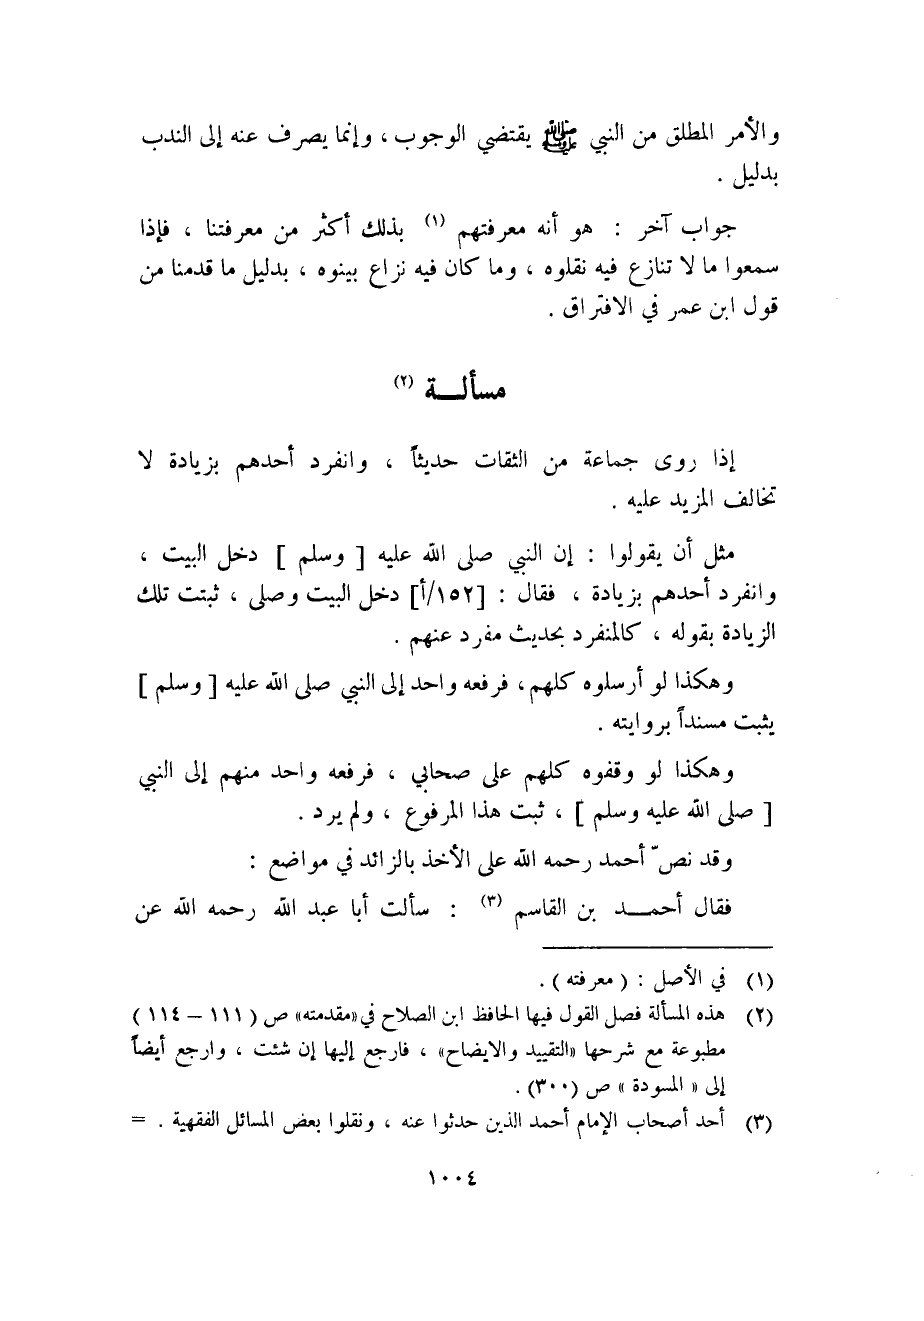 والأمر المطلق من النبي ﷺ يقتضي الوجوب ، وإنما يصرف عنه إلى الندب
بدليل .
جواب آخر : هو أنه معرفتهم (١) بذلك أكثر من معرفتنا ، فإذا
سمعوا ما لا تنازع فيه نقلوه ، وما كان فيه نزاع بينوه ، بدليل ما قدمنا من
قول ابن عمر في الافتراق .
مسألـــة (٢)
إذا روى جماعة من الثقات حديثاً ، وانفرد أحدهم بزيادة لا
تخالف المزيد عليه .
مثل أن يقولوا : إن النبي صلى الله عليه [ وسلم ] دخل البيت ،
وانفرد أحدهم بزيادة ، فقال : [١٥٢/أ] دخل البيت وصلى ، ثبتت تلك
الزيادة بقوله ، كالمنفرد بحديث مفرد عنهم .
وهكذا لو أرسلوه كلهم ، فرفعه واحد إلى النبي صلى الله عليه [ وسلم ]
يثبت مسنداً بروايته .
وهكذا لو وقفوه كلهم على صحابي ، فرفعه واحد منهم إلى النبي
[ صلى الله عليه وسلم ] ، ثبت هذا المرفوع ، ولم يرد .
وقد نصّ أحمد رحمه الله على الأخذ بالزائد في مواضع :
فقال أحمـــد بن القاسم (٣) : سألت أبا عبد الله رحمه الله عن
(١) في الأصل : ( معرفته ) .
(٢) هذه المسألة فصل القول فيها الحافظ ابن الصلاح في «مقدمته» ص ( ١١١ – ١١٤ )
مطبوعة مع شرحها «التقييد والايضاح» ، فارجع إليها إن شئت ، وارجع أيضاً
إلى « المسودة » ص (٣٠٠) .
(٣) أحد أصحاب الإمام أحمد الذين حدثوا عنه ، ونقلوا بعض المسائل الفقهية . =
١٠٠٤